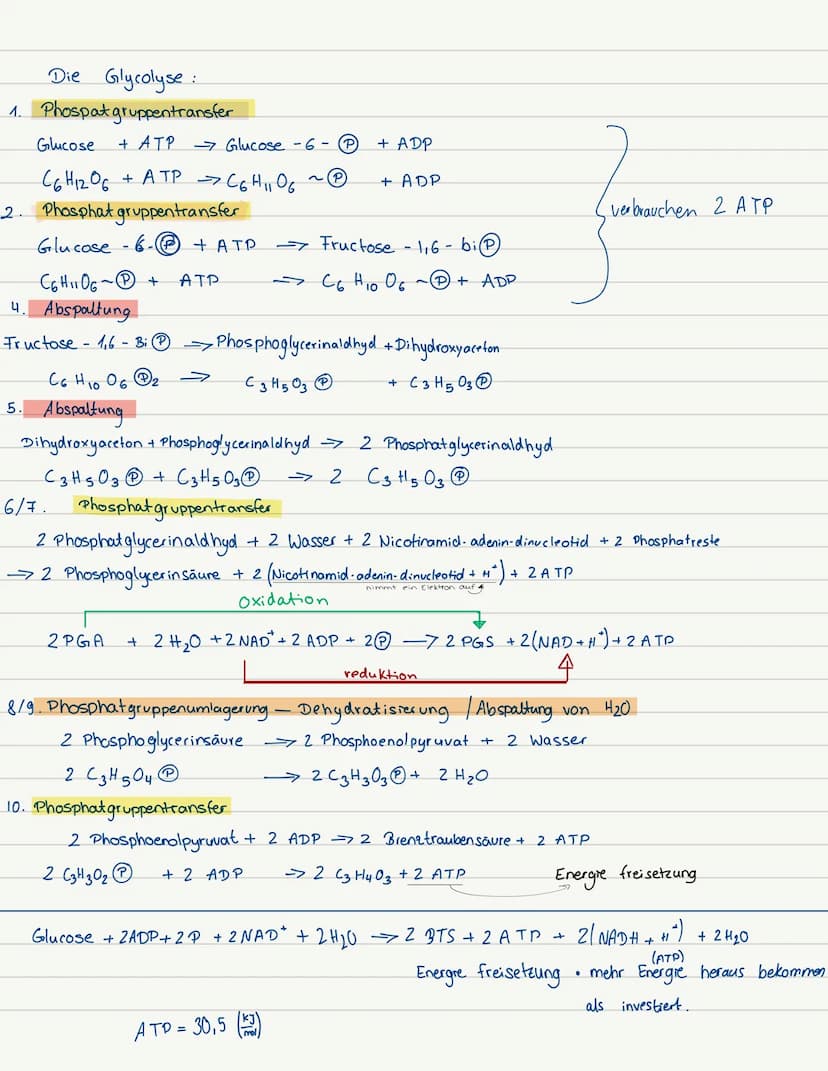 Die Glycolyse :
1. Phospatgruppentransfer
Glucose + ATP → Glucose - 6 - Ⓟ + ADP
C6H12O6 + ATP → C6H11O6 ~ Ⓟ + ADP
2. Phosphatgruppentransfer
verbrauchen 2 ATP
Glucose - 6-Ⓟ + ATP → Fructose - 1,6 - biⓅ
C6H11O6~Ⓟ + ATP → C6 H10 O6 ~Ⓟ + ADP
4. Abspaltung
Fructose - 1,6 - BiⓅ → Phosphoglycerinaldhyd + Dihydroxyaceton
C6 H10 O6 Ⓟ2 → C3H5O3 Ⓟ + C3H5O3Ⓟ
5. Abspaltung
Dihydroxyaceton + Phosphoglycerinaldhyd → 2 Phosphatglycerinaldhyd
C3H5O3Ⓟ + C3H5O3Ⓟ → 2 C3H5O3Ⓟ
6/7. Phosphatgruppentransfer
2 Phosphatglycerinaldhyd + 2 Wasser + 2 Nicotinamid-adenin-dinucleotid + 2 Phosphatreste
→ 2 Phosphoglycerinsäure + 2 (Nicotinamid-adenin-dinucleotid + H⁺) + 2 ATP
nimmt ein Elektron auf
Oxidation
2 PGA + 2 H2O + 2 NAD⁺ + 2 ADP + 2Ⓟ → 2 PGS + 2(NAD + H⁺) + 2 ATP
reduktion
8/9. Phosphatgruppenumlagerung – Dehydratisierung / Abspaltung von H2O
2 Phosphoglycerinsäure → 2 Phosphoenolpyruvat + 2 Wasser
2 C3H5O4Ⓟ → 2 C3H3O3Ⓟ + 2 H2O
10. Phosphatgruppentransfer
2 Phosphoenolpyruvat + 2 ADP → 2 Brenztraubensäure + 2 ATP
2 C3H3O2Ⓟ + 2 ADP → 2 C3H4O3 + 2 ATP Energie freisetzung
Glucose + 2ADP + 2P + 2NAD⁺ + 2H2O → 2 BTS + 2 ATP + 2(NADH + H⁺) + 2H2O
(ATP)
Energie freisetzung • mehr Energie heraus bekommen
als investiert.
ATP = 30,5 (kJ/mol)